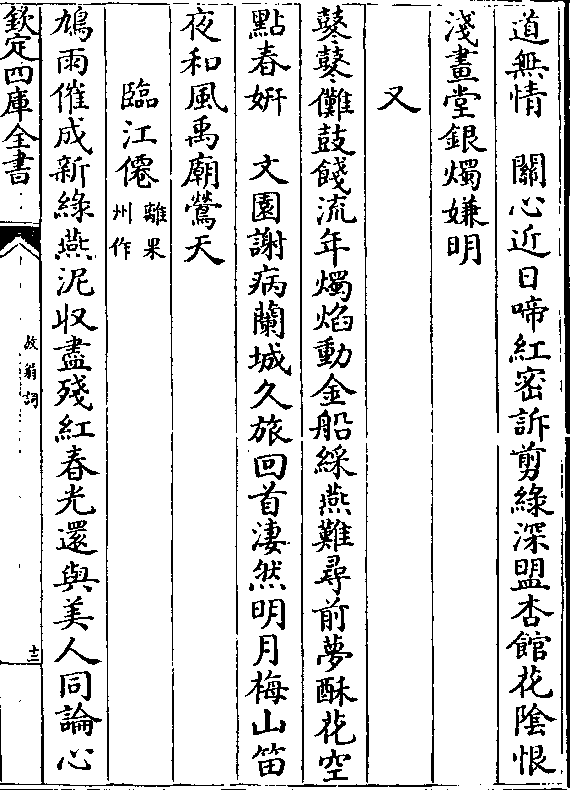 道無情　關心近日啼紅密訴剪綠深盟杏館花陰恨
淺畫堂銀燭嫌明
又
鼕鼕儺鼓餞流年燭焰動金船綵燕難尋前夢酥花空
點春妍　文園謝病蘭城久旅回首淒然明月梅山笛
夜和風禹廟鶯天
臨江僊離果州作
鳩雨催成新綠燕泥収盡殘紅春光還與美人同論心
欽定四庫全書
放翁詞
十三